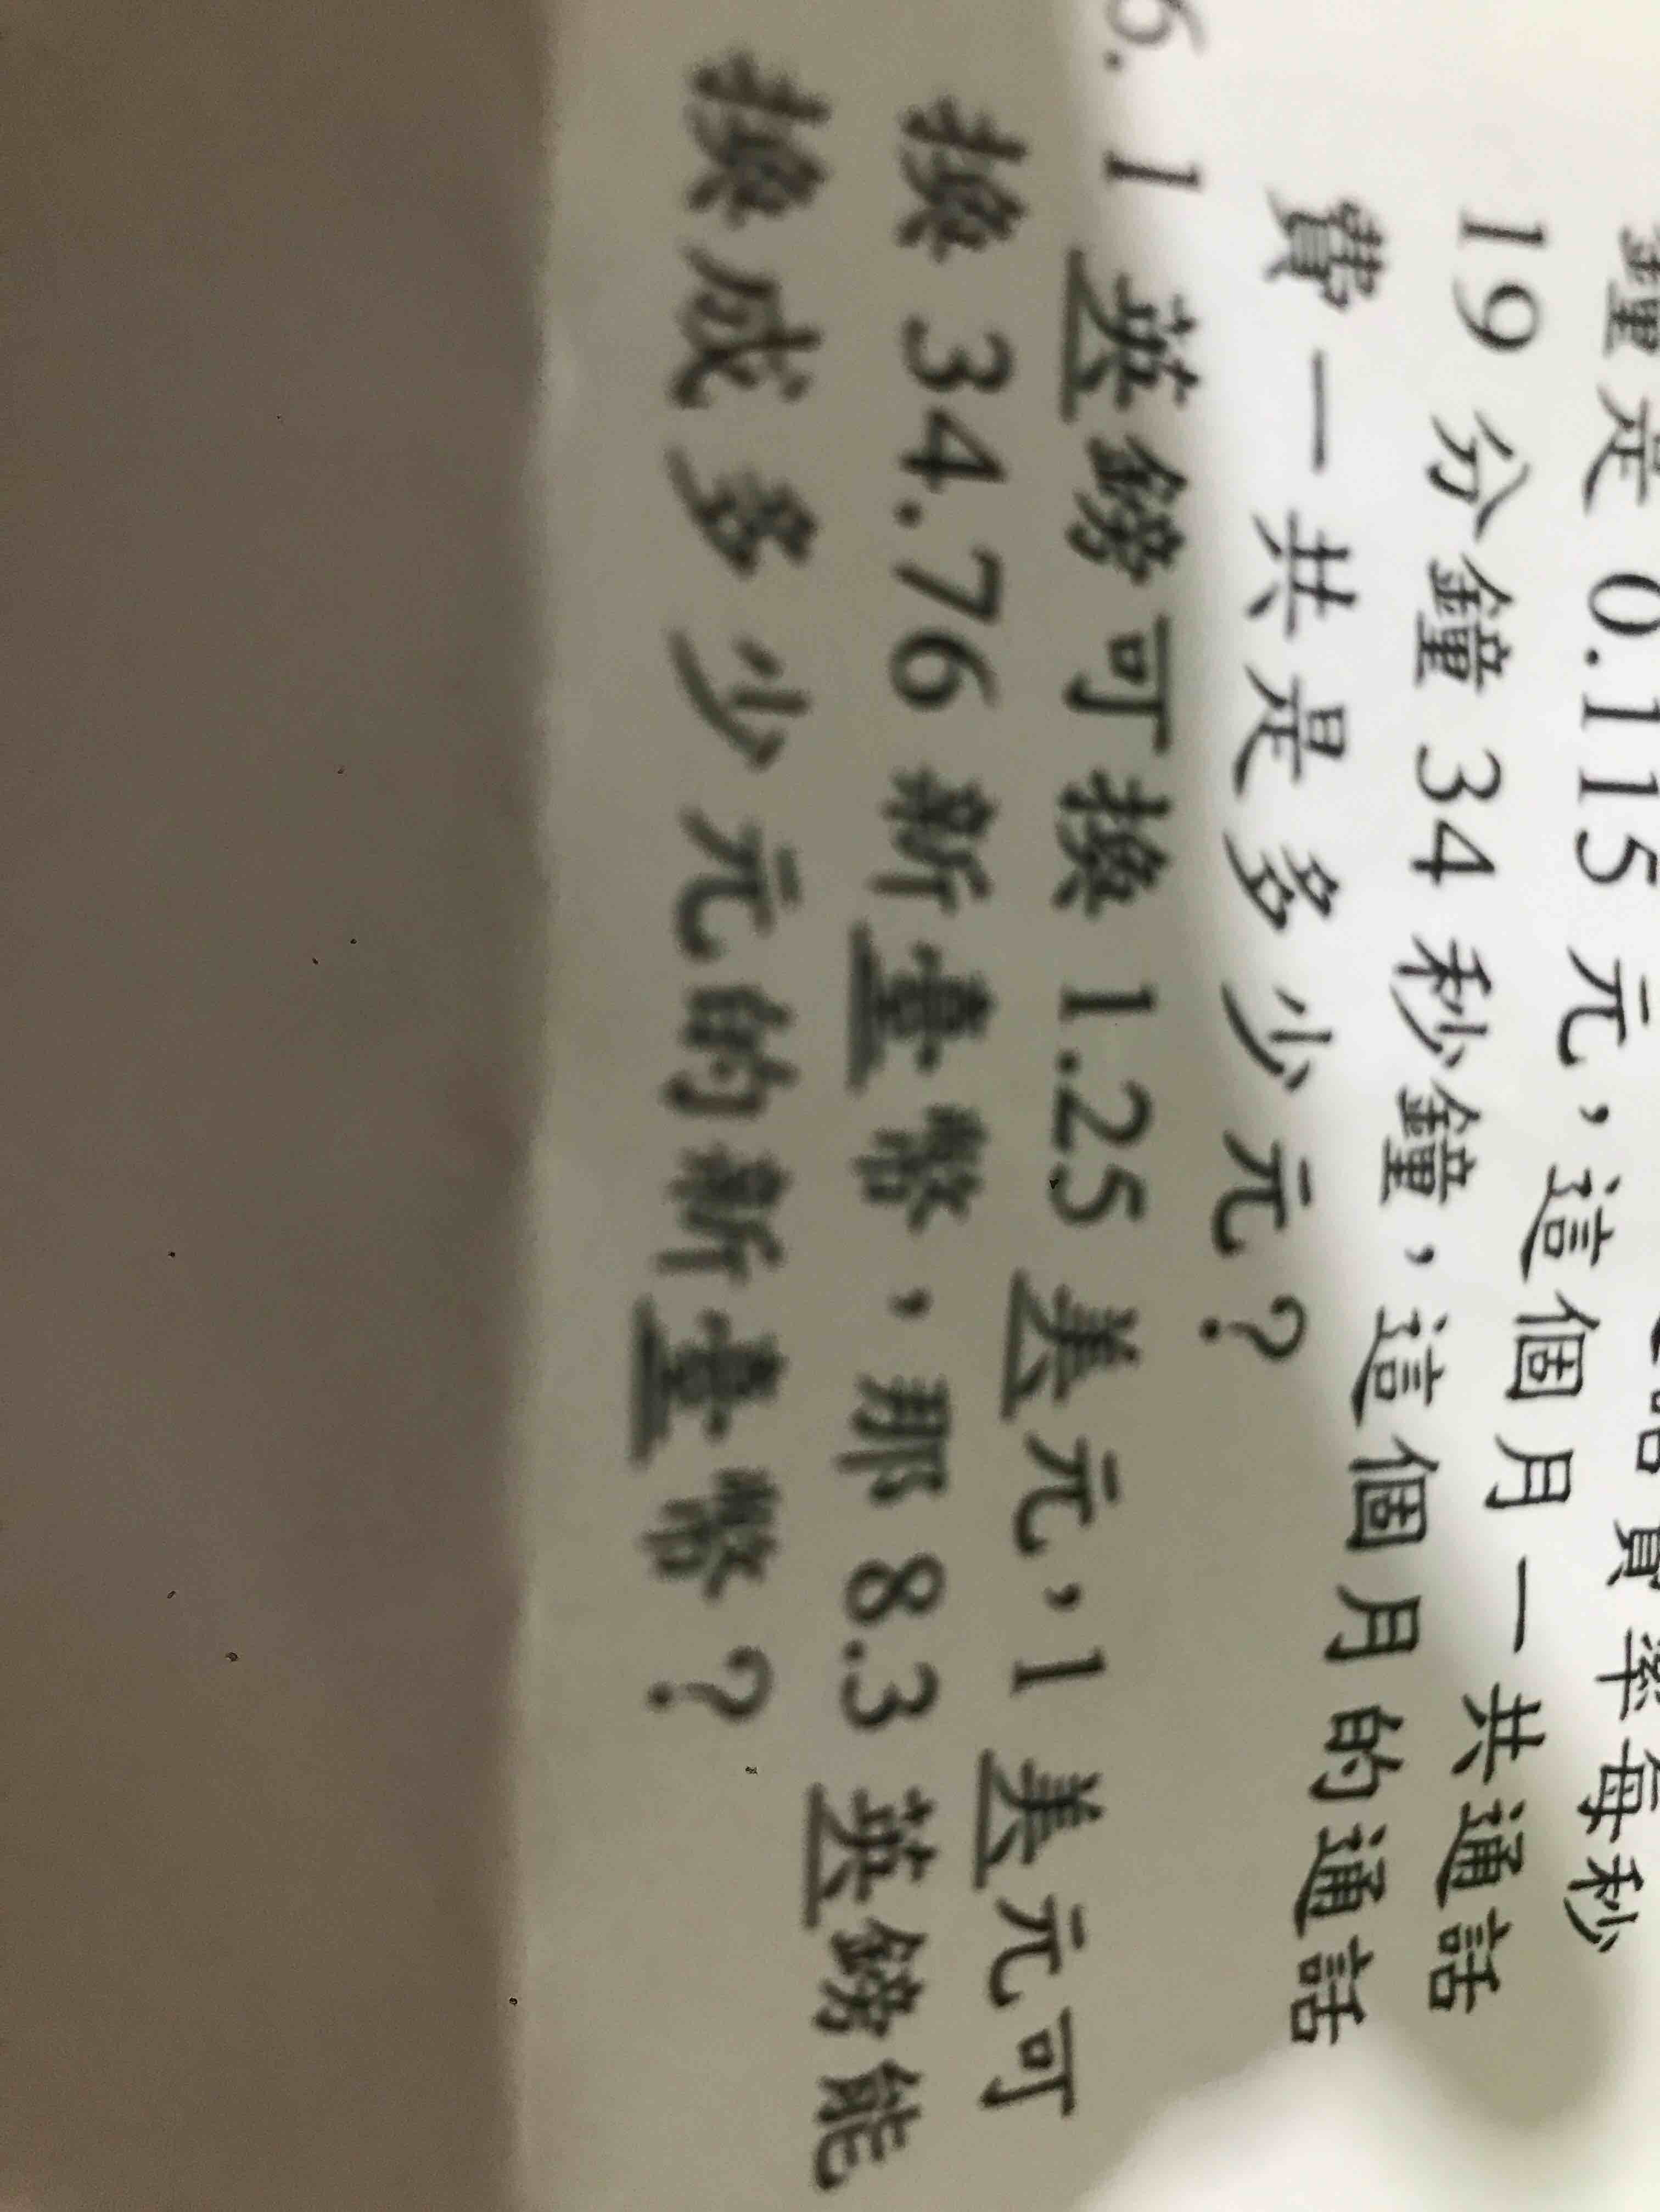 鐘是 0.115 元，這個月一共通話
19 分鐘 34 秒鐘，這個月的通話
費一共是多少元？
6. 1 英鎊可換 1.25 美元，1 美元可
換 34.76 新臺幣，那 8.3 英鎊能
換成多少元的新臺幣？